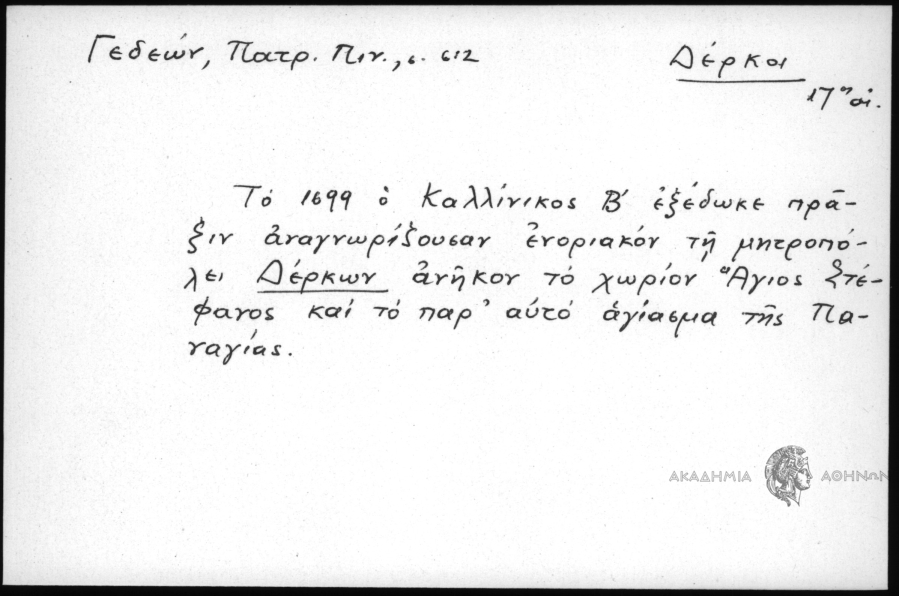 Γεδεών, Πατρ. Πιν., σ. 612
Δέρκοι
17ος αἰ.
Τό 1699 ὁ Καλλίνικος Β' ἐξέδωκε πρᾶ-
ξιν ἀναγνωρίζουσαν ἐνοριακόν τῇ μητροπό-
λει Δέρκων ἀνῆκον τό χωρίον Ἅγιος Στέ-
φανος καί τό παρ' αὐτό ἁγίασμα τῆς Πα-
ναγίας.
ΑΚΑΔΗΜΙΑ ΑΘΗΝΩΝ